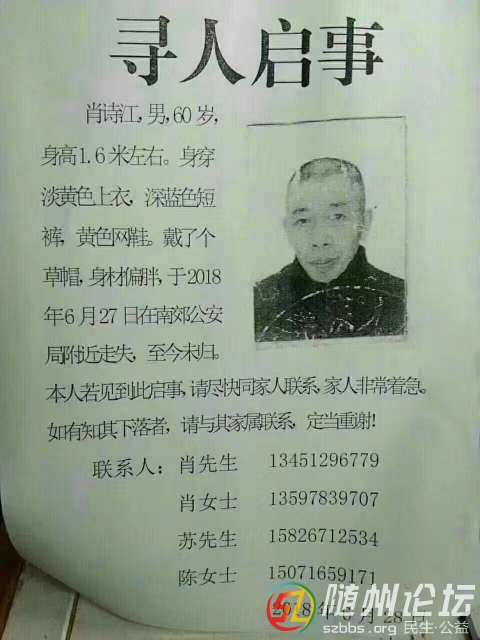 寻人启事
肖诗江，男，60岁，
身高1.6米左右。身穿
淡黄色上衣，深蓝色短
裤，黄色网鞋。戴了个
草帽，身材偏胖，于2018
年6月27日在南郊公安
局附近走失，至今未归。
本人若见到此启事，请尽快同家人联系，家人非常着急。
如有知其下落者，请与其家属联系，定当重谢!
联系人：肖先生 13451296779
肖女士 13597839707
苏先生 15826712534
陈女士 15071659171
2018年6月28
随州论坛
szbbs.org 民生·公益